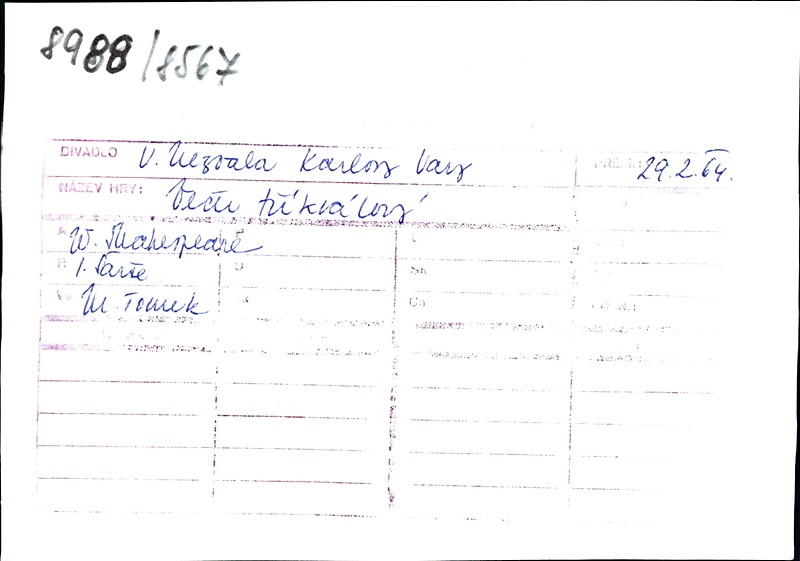 8988/8567
DIVADLO V. Nezvala Karlovy Vary PREM.: 29.2.64.
NÁZEV HRY: Večer tříkrálový
A W. Shakespeare
R
V M. Tomek